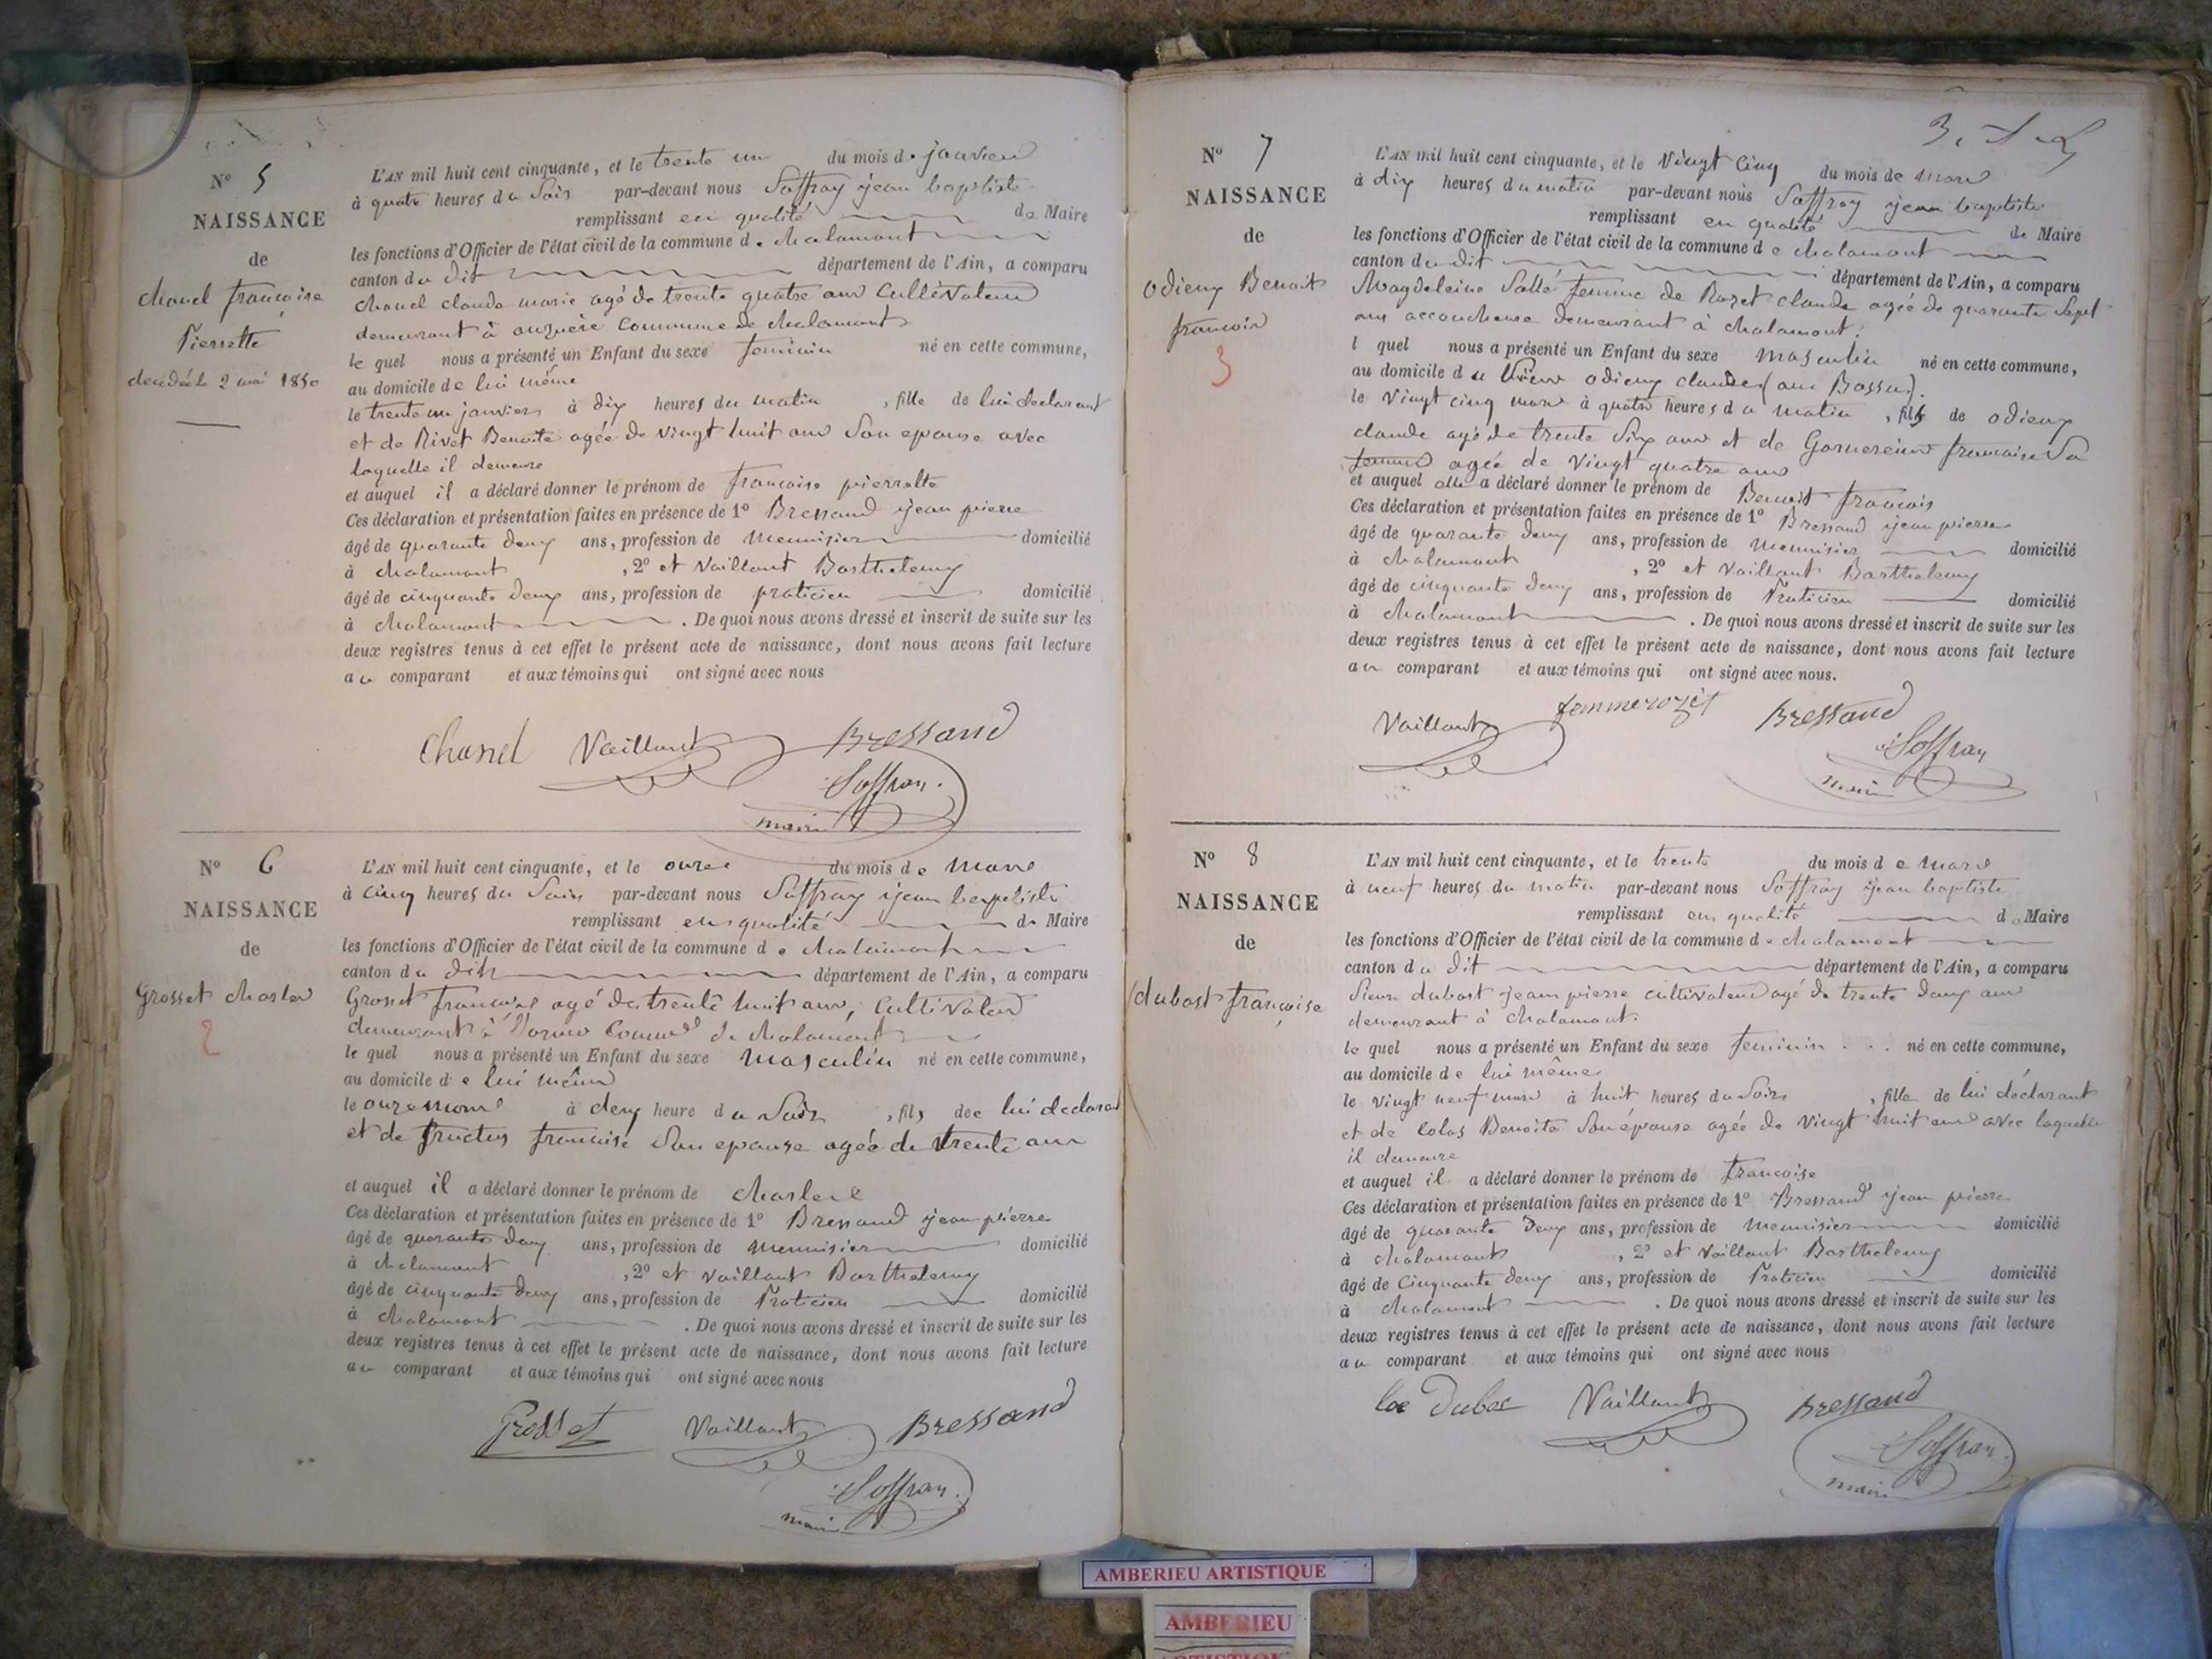 N° 5
NAISSANCE
de
Chanel françoise
Pierrette
decédée le 2 mai 1850
L'AN mil huit cent cinquante, et le trente un du mois de janvier
à quatre heures du Soir par-devant nous Saffray jean baptiste
remplissant en qualité de Maire
les fonctions d'Officier de l'état civil de la commune de chalamont
canton du dit département de l'Ain, a comparu
Chanel claude marie agé de trente quatre ans Cultivateur
demeurant à commune de chalamont
le quel nous a présenté un Enfant du sexe feminin né en cette commune,
au domicile de lui même
le trente un janvier à dix heures du matin , fille de lui declarant
et de Rivet Benoite agée de vingt huit ans Son epouse avec
laquelle il demeure
et auquel il a déclaré donner le prénom de francoise pierrette
Ces déclaration et présentation faites en présence de 1° Bressand jean pierre
âgé de quarante deux ans, profession de Menuisier domicilié
à chalamont , 2° et Vaillant Barthelemy
âgé de cinquante deux ans, profession de praticien domicilié
à chalamont . De quoi nous avons dressé et inscrit de suite sur les
deux registres tenus à cet effet le présent acte de naissance, dont nous avons fait lecture
au comparant et aux témoins qui ont signé avec nous
Chanel Vaillant Bressand
Saffray
maire
N° 6
NAISSANCE
de
Grosset charles
2
L'AN mil huit cent cinquante, et le onze du mois de mars
à cinq heures du Soir par-devant nous Saffray jean baptiste
remplissant en qualité de Maire
les fonctions d'Officier de l'état civil de la commune de chalamont
canton du dit département de l'Ain, a comparu
Grosset françois agé de trente huit ans, Cultivateur
demeurant à de chalamont
le quel nous a présenté un Enfant du sexe masculin né en cette commune,
au domicile de lui même
le onze mars à deux heure du Soir , fils de lui declarant
et de fructus francoise Son epouse agée de trente ans
et auquel il a déclaré donner le prénom de charles
Ces déclaration et présentation faites en présence de 1° Bressand jean pierre
âgé de quarante deux ans, profession de menuisier domicilié
à chalamont , 2° et Vaillant Barthelemy
âgé de cinquante deux ans, profession de Praticien domicilié
à chalamont . De quoi nous avons dressé et inscrit de suite sur les
deux registres tenus à cet effet le présent acte de naissance, dont nous avons fait lecture
au comparant et aux témoins qui ont signé avec nous
Grosset Vaillant Bressand
Saffray
maire
N° 7
NAISSANCE
de
Odieux Benoit
francois
3
L'AN mil huit cent cinquante, et le Vingt Cinq du mois de mars
à dix heures du matin par-devant nous Saffray jean baptiste
remplissant en qualité de Maire
les fonctions d'Officier de l'état civil de la commune de chalamont
canton du dit département de l'Ain, a comparu
Magdeleine Sallé femme de Rozet claude agée de quarante Sept
ans accoucheuse demeurant à chalamont.
l quel nous a présenté un Enfant du sexe masculin né en cette commune,
au domicile du Sieur odieux claude (au Bassu).
le Vingt cinq mars à quatre heures du matin , fils de odieux
claude agé de trente Six ans et de francoise Sa
femme agée de Vingt quatre ans
et auquel elle a déclaré donner le prénom de Benoit francois
Ces déclaration et présentation faites en présence de 1° Bressand jean pierre
âgé de quarante deux ans, profession de menuisier domicilié
à chalamont , 2° et Vaillant Barthelemy
âgé de cinquante deux ans, profession de Praticien domicilié
à chalamont . De quoi nous avons dressé et inscrit de suite sur les
deux registres tenus à cet effet le présent acte de naissance, dont nous avons fait lecture
au comparant et aux témoins qui ont signé avec nous.
Vaillant femme rozet Bressand
Saffray
maire
N° 8
NAISSANCE
de
dubost françoise
L'AN mil huit cent cinquante, et le trente du mois de mars
à neuf heures du matin par-devant nous Saffray jean baptiste
remplissant en qualité de Maire
les fonctions d'Officier de l'état civil de la commune de chalamont
canton du dit département de l'Ain, a comparu
Sieur dubost jean pierre cultivateur agé de trente deux ans
demeurant à chalamont.
le quel nous a présenté un Enfant du sexe feminin né en cette commune,
au domicile de lui même
le vingt neuf mars à huit heures du Soir , fille de lui déclarant
et de colas Benoite Son épouse agée de Vingt huit ans avec laquelle
il demeure
et auquel il a déclaré donner le prénom de francoise
Ces déclaration et présentation faites en présence de 1° Bressand jean pierre
âgé de quarante deux ans, profession de menuisier domicilié
à chalamont , 2° et Vaillant Barthelemy
âgé de Cinquante deux ans, profession de Praticien domicilié
à chalamont . De quoi nous avons dressé et inscrit de suite sur les
deux registres tenus à cet effet le présent acte de naissance, dont nous avons fait lecture
au comparant et aux témoins qui ont signé avec nous
Vaillant Bressand
Saffray
maire
AMBERIEU ARTISTIQUE
AMBERIEU
ARTISTIQUE